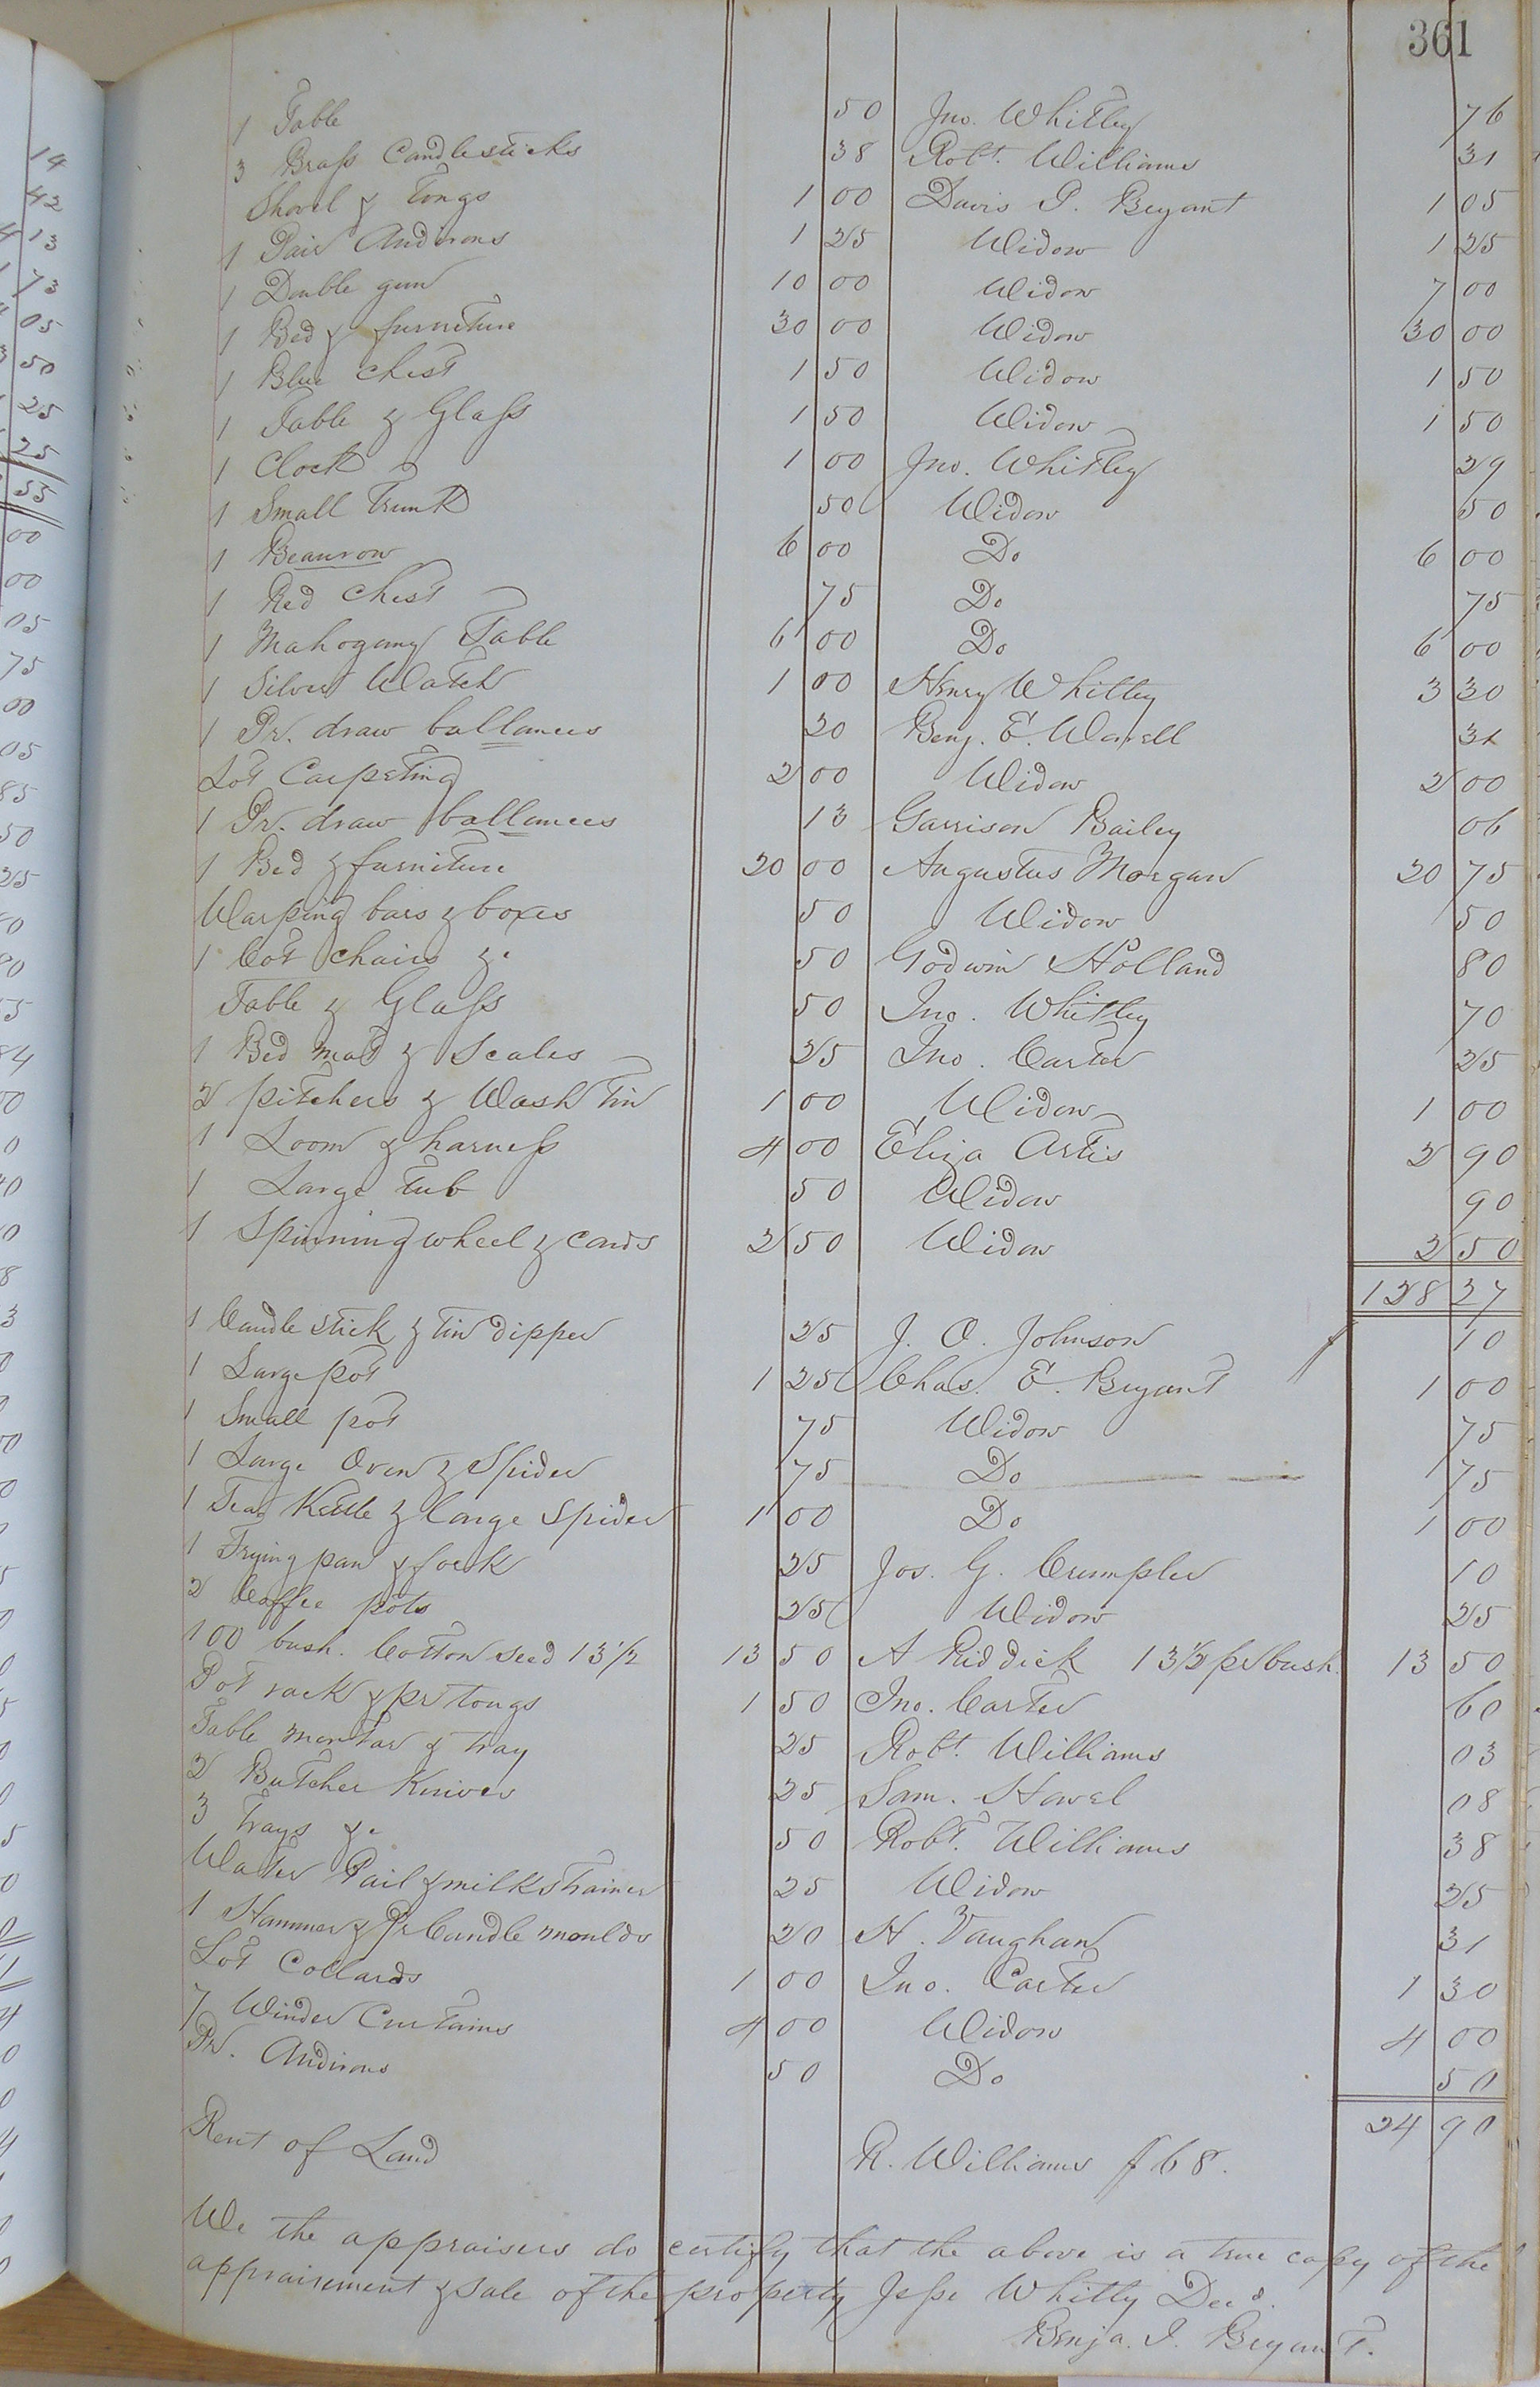 361
1 Table 50 Jno. Whitley 76
3 Brass Candlesticks 38 Robt. Williams 31
Shovel & Tongs 1 00 Davis P. Bryant 1 05
1 Pair Andirons 1 25 Widow 1 25
1 Double gun 10 00 Widow 7 00
1 Bed & furniture 30 00 Widow 30 00
1 Blue Chest 1 50 Widow 1 50
1 Table & Glass 1 50 Widow 1 50
1 Clock 1 00 Jno. Whitley 29
1 Small Trunk 50 Widow 50
1 Beaurow 6 00 Do 6 00
1 Red Chest 75 Do 75
1 Mahogany Table 6 00 Do 6 00
1 Silver Watch 1 00 Henry Whitley 3 30
1 Pr. draw ballances 20 Benj. E. Worrell 31
Lot Carpeting 2 00 Widow 2 00
1 Pr. draw ballances 13 Garrison Bailey 06
1 Bed & furniture 20 00 Augustus Morgan 20 75
Warping bars & boxes 50 Widow 50
1 Cot chairs &c 50 Godwin Holland 80
Table & Glass 50 Jno. Whitley 70
1 Bed mat & Scales 25 Jno. Carter 25
2 pitchers & Wash Tin 1 00 Widow 1 00
1 Loom & harness 4 00 Eliza Artis 2 90
1 Large Tub 50 Widow 90
1 Spinning wheel & cards 2 50 Widow 2 50
128 27
1 Candle stick & tin dipper 25 J. O. Johnson 10
1 Large pot 1 25 Chas. E. Bryant 1 00
1 Small pot 75 Widow 75
1 Large Oven & Spider 75 Do 75
1 Tea Kettle & large Spider 1 00 Do 1 00
1 Frying pan & fork 25 Jos. G. Crumpler 10
2 Coffee pots 25 Widow 25
100 bush. Cotton seed 13 1/2 13 50 A Riddick 13 1/2 pr bush. 13 50
Pot rack & pr tongs 1 50 Jno. Carter 60
Table mortar & tray 25 Robt. Williams 03
2 Butcher Knives 25 Sam. Howel 08
3 Trays &c 50 Robt. Williams 38
Water Pail & milk strainer 25 Widow 25
1 Hammer & Pr Candle moulds 20 H. Vaughan 31
Lot Collards 1 00 Jno. Carter 1 30
7 Winder Curtains 4 00 Widow 4 00
Pr. Andirons 50 Do 50
24 90
Rent of Land R. Williams $68.
We the appraisers do certify that the above is a true copy of the
appraisement & sale of the property Jesse Whitly Decd.
Benja. I. Bryant.